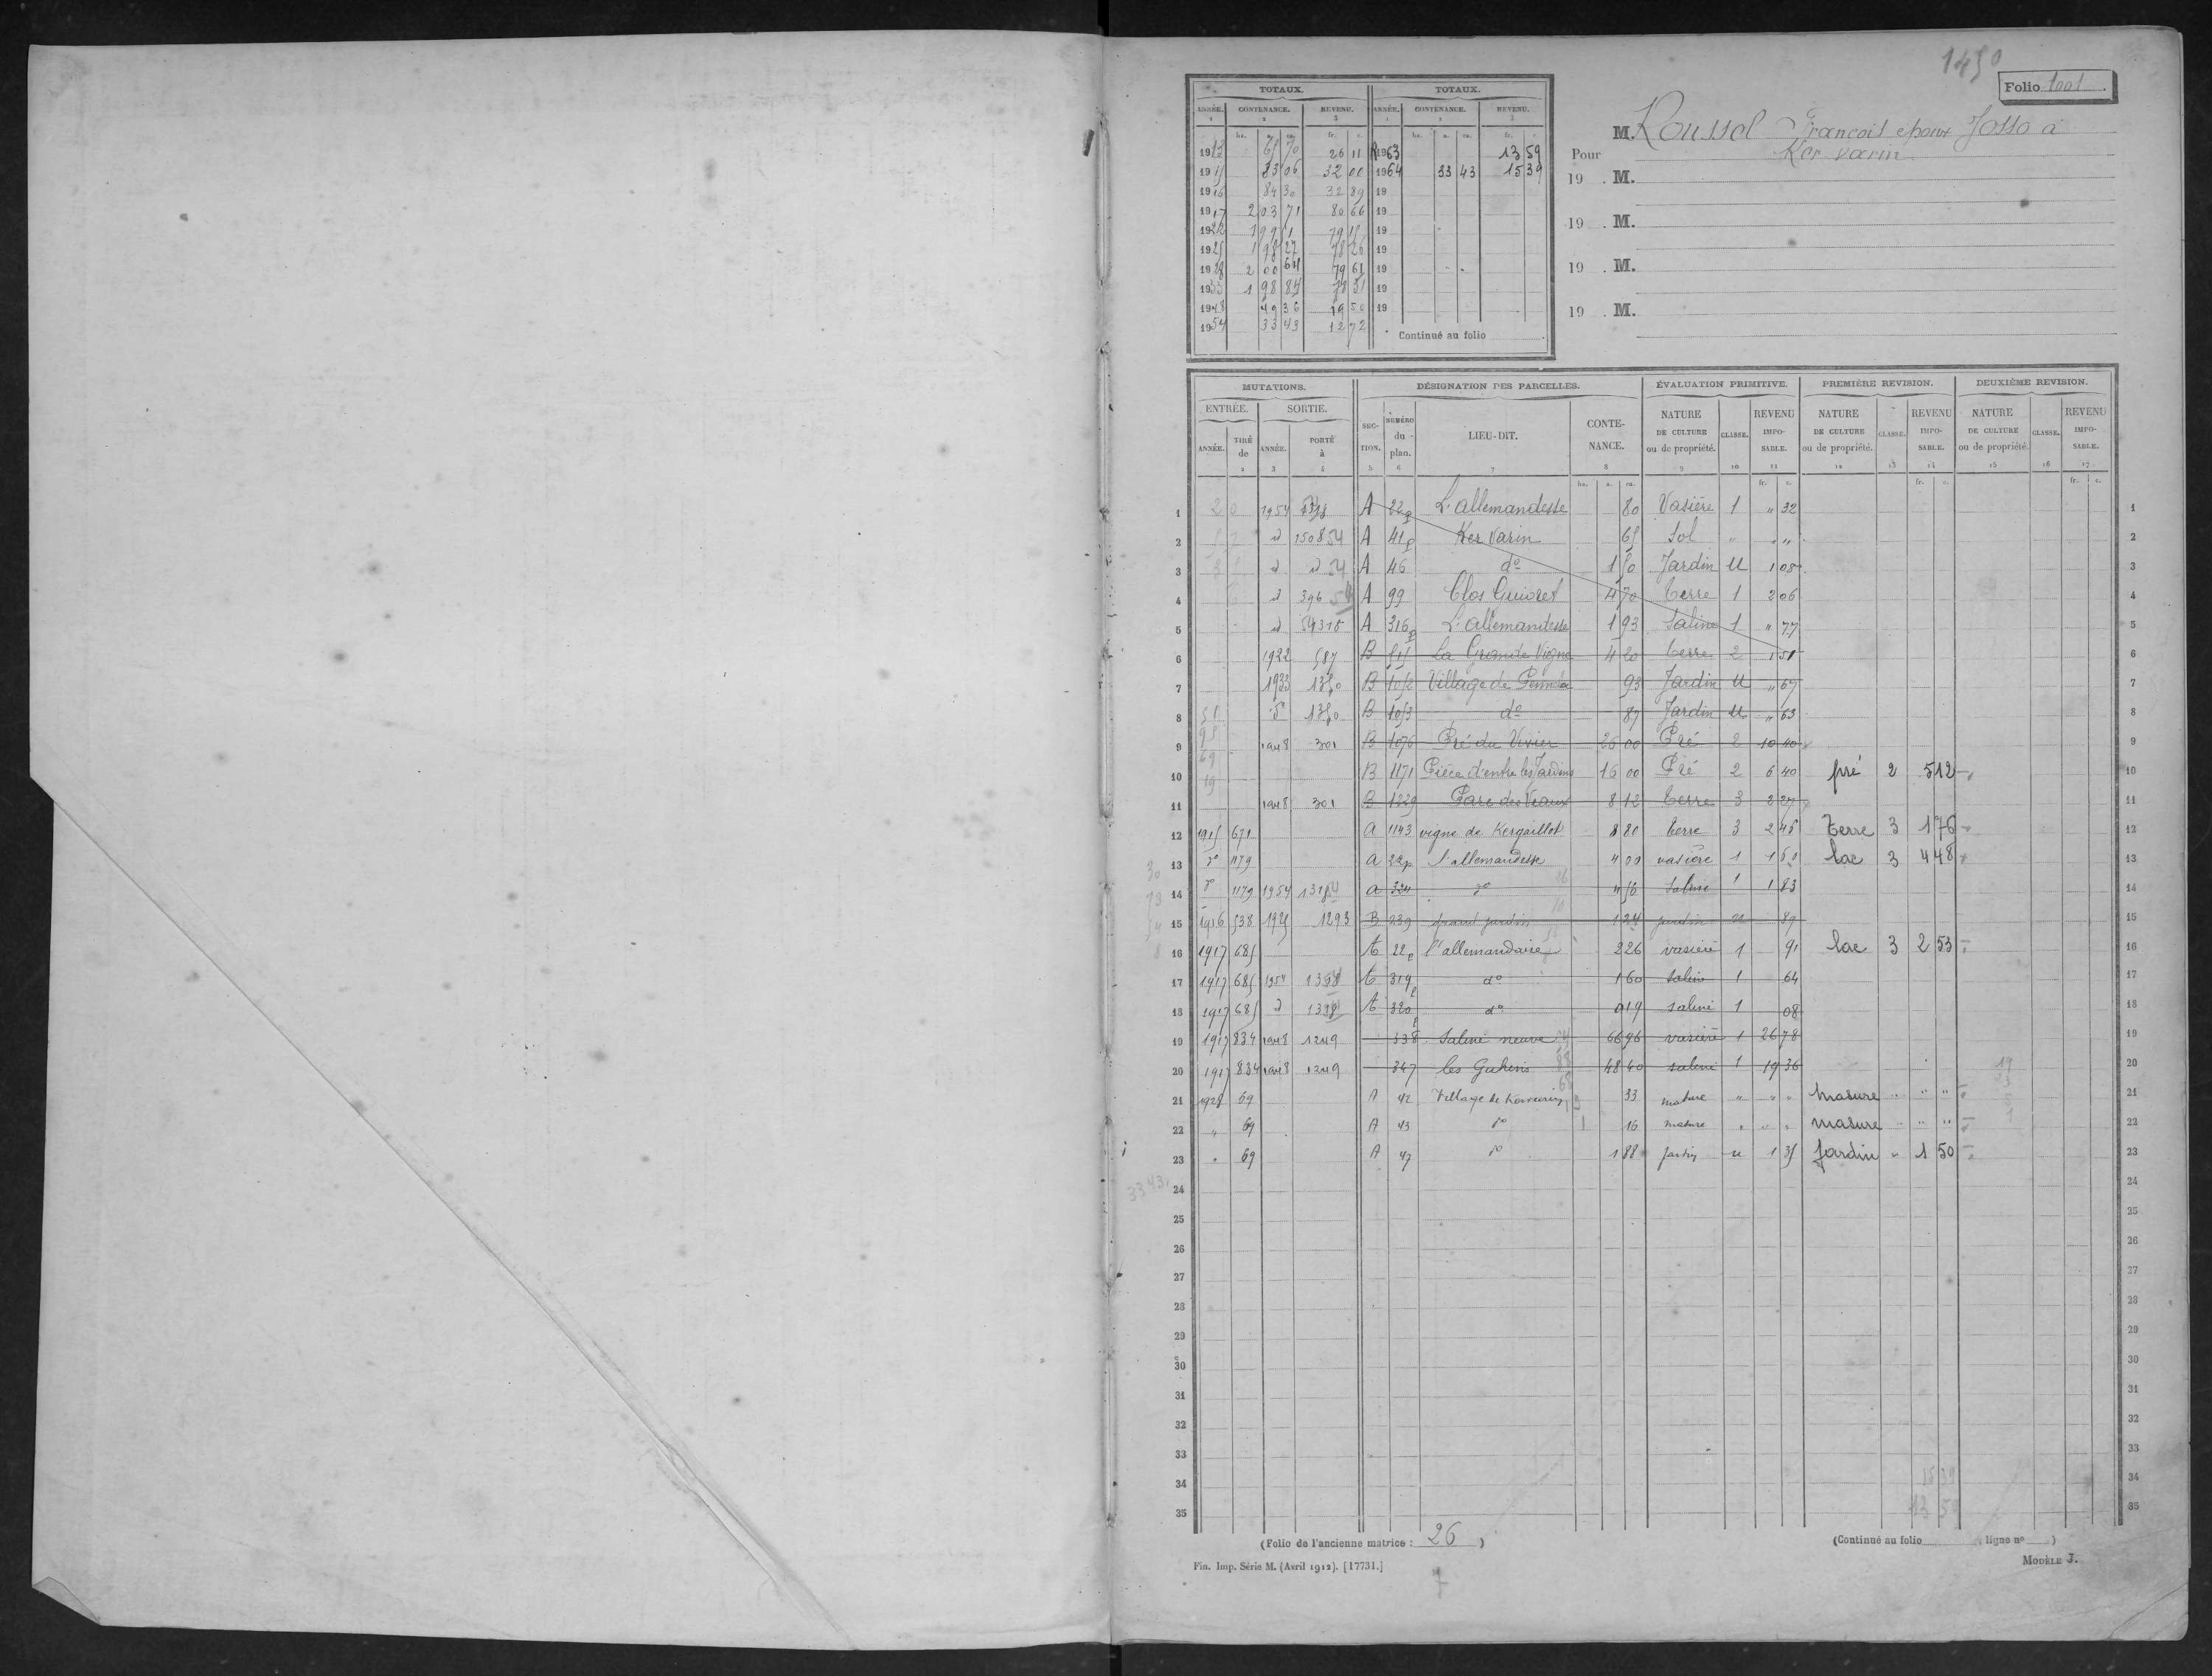 1450
Folio 1001.
TOTAUX. TOTAUX.
ANNÉE. CONTENANCE. REVENU. ANNÉE. CONTENANCE. REVENU.
1 2 3 1 2 3
ha. a. ca. fr. c. ha. a. ca. fr. c.
1913 65 70 26 11 R1963 13 59
1915 83 06 32 00 1964 33 43 15 39
1916 84 30 32 89 19
1917 2 03 71 80 66 19
1922 1 99 51 79 15 19
1925 1 98 27 78 26 19
1928 2 00 64 79 61 19
1933 1 98 84 78 31 19
1948 49 36 19 50 19
1954 33 43 12 72
Continué au folio
M. Roussel François epoux Josso à
Pour Ker varin
19 . M.
19 . M.
19 . M.
19 . M.
MUTATIONS. DÉSIGNATION DES PARCELLES. ÉVALUATION PRIMITIVE. PREMIÈRE REVISION. DEUXIÈME REVISION.
ENTRÉE. SORTIE. SECTION. NUMÉRO du plan. LIEU-DIT. CONTENANCE. NATURE DE CULTURE ou de propriété. CLASSE. REVENU IMPOSABLE. NATURE DE CULTURE ou de propriété. CLASSE. REVENU IMPOSABLE. NATURE DE CULTURE ou de propriété. CLASSE. REVENU IMPOSABLE.
ANNÉE. TIRÉ de ANNÉE. PORTÉ à
2 3 4 5 6 7 8 9 10 11 12 13 14 15 16 17
ha. a. ca. fr. c. fr. c. fr. c.
1 1954 A 22p L'allemandesse 80 Vasière 1 " 32 1
2 d A 41p Ker Varin 65 Sol " " " 2
3 d d 54 A 46 do 1 50 Jardin U 1 08 3
4 d 396 54 A 99 Clos Guioret 4 70 Terre 1 2 06 4
5 d A 316p L'allemandesse 1 93 Saline 1 " 77 5
6 1922 587 B La Grande Vigne 4 20 Terre 2 1 51 6
7 1933 1350 B 1052 Village de 93 Jardin U " 67 7
8 do 1350 B 1053 do 87 Jardin U " 63 8
9 1948 301 B 1076 Pré du Vivier 26 00 Pré 2 10 40 9
10 B 1171 Pièce d'entre les Jardins 16 00 Pré 2 6 40 pré 2 5 12 10
11 1948 301 B 1229 Parc des Veaux 8 12 Terre 3 2 27 11
12 1915 671 A 1143 vigne de Kergaillot 8 80 terre 3 2 46 Terre 3 1 76 12
13 do 1179 A 22p l'allemandesse 4 00 vasière 1 1 60 lac 3 4 48 13
14 do 1179 1954 A 324 do 4 56 Saline 1 1 83 14
15 1916 538 1925 1293 B 239 grand jardin 1 24 jardin u 89 15
16 1917 685 A 22p l'allemandaire 2 26 vasière 1 91 lac 3 2 53 16
17 1917 685 1954 A 319 do 1 60 saline 1 64 17
18 1917 685 d A 320p do 0 19 saline 1 08 18
19 1917 834 1948 1249 338 Saline neuve 66 96 vasière 1 26 78 19
20 1917 834 1948 1249 347 les Gaheris 48 40 saline 1 19 36 20
21 1928 69 A 42 Village de Kervarin 33 masure " " " masure " " " 21
22 " 69 A 43 do 16 masure " " " masure " " " 22
23 " 69 A 47 do 1 88 Jardin u 1 35 Jardin " 1 50 23
33 43
24 24
25 25
26 26
27 27
28 28
29 29
30 30
31 31
32 32
33 33
34 15 39 34
35 13 59 35
(Folio de l'ancienne matrice : 26 ) (Continué au folio , ligne no )
Fin. Imp. Série M. (Avril 1912). [17731.] MODÈLE J.
7